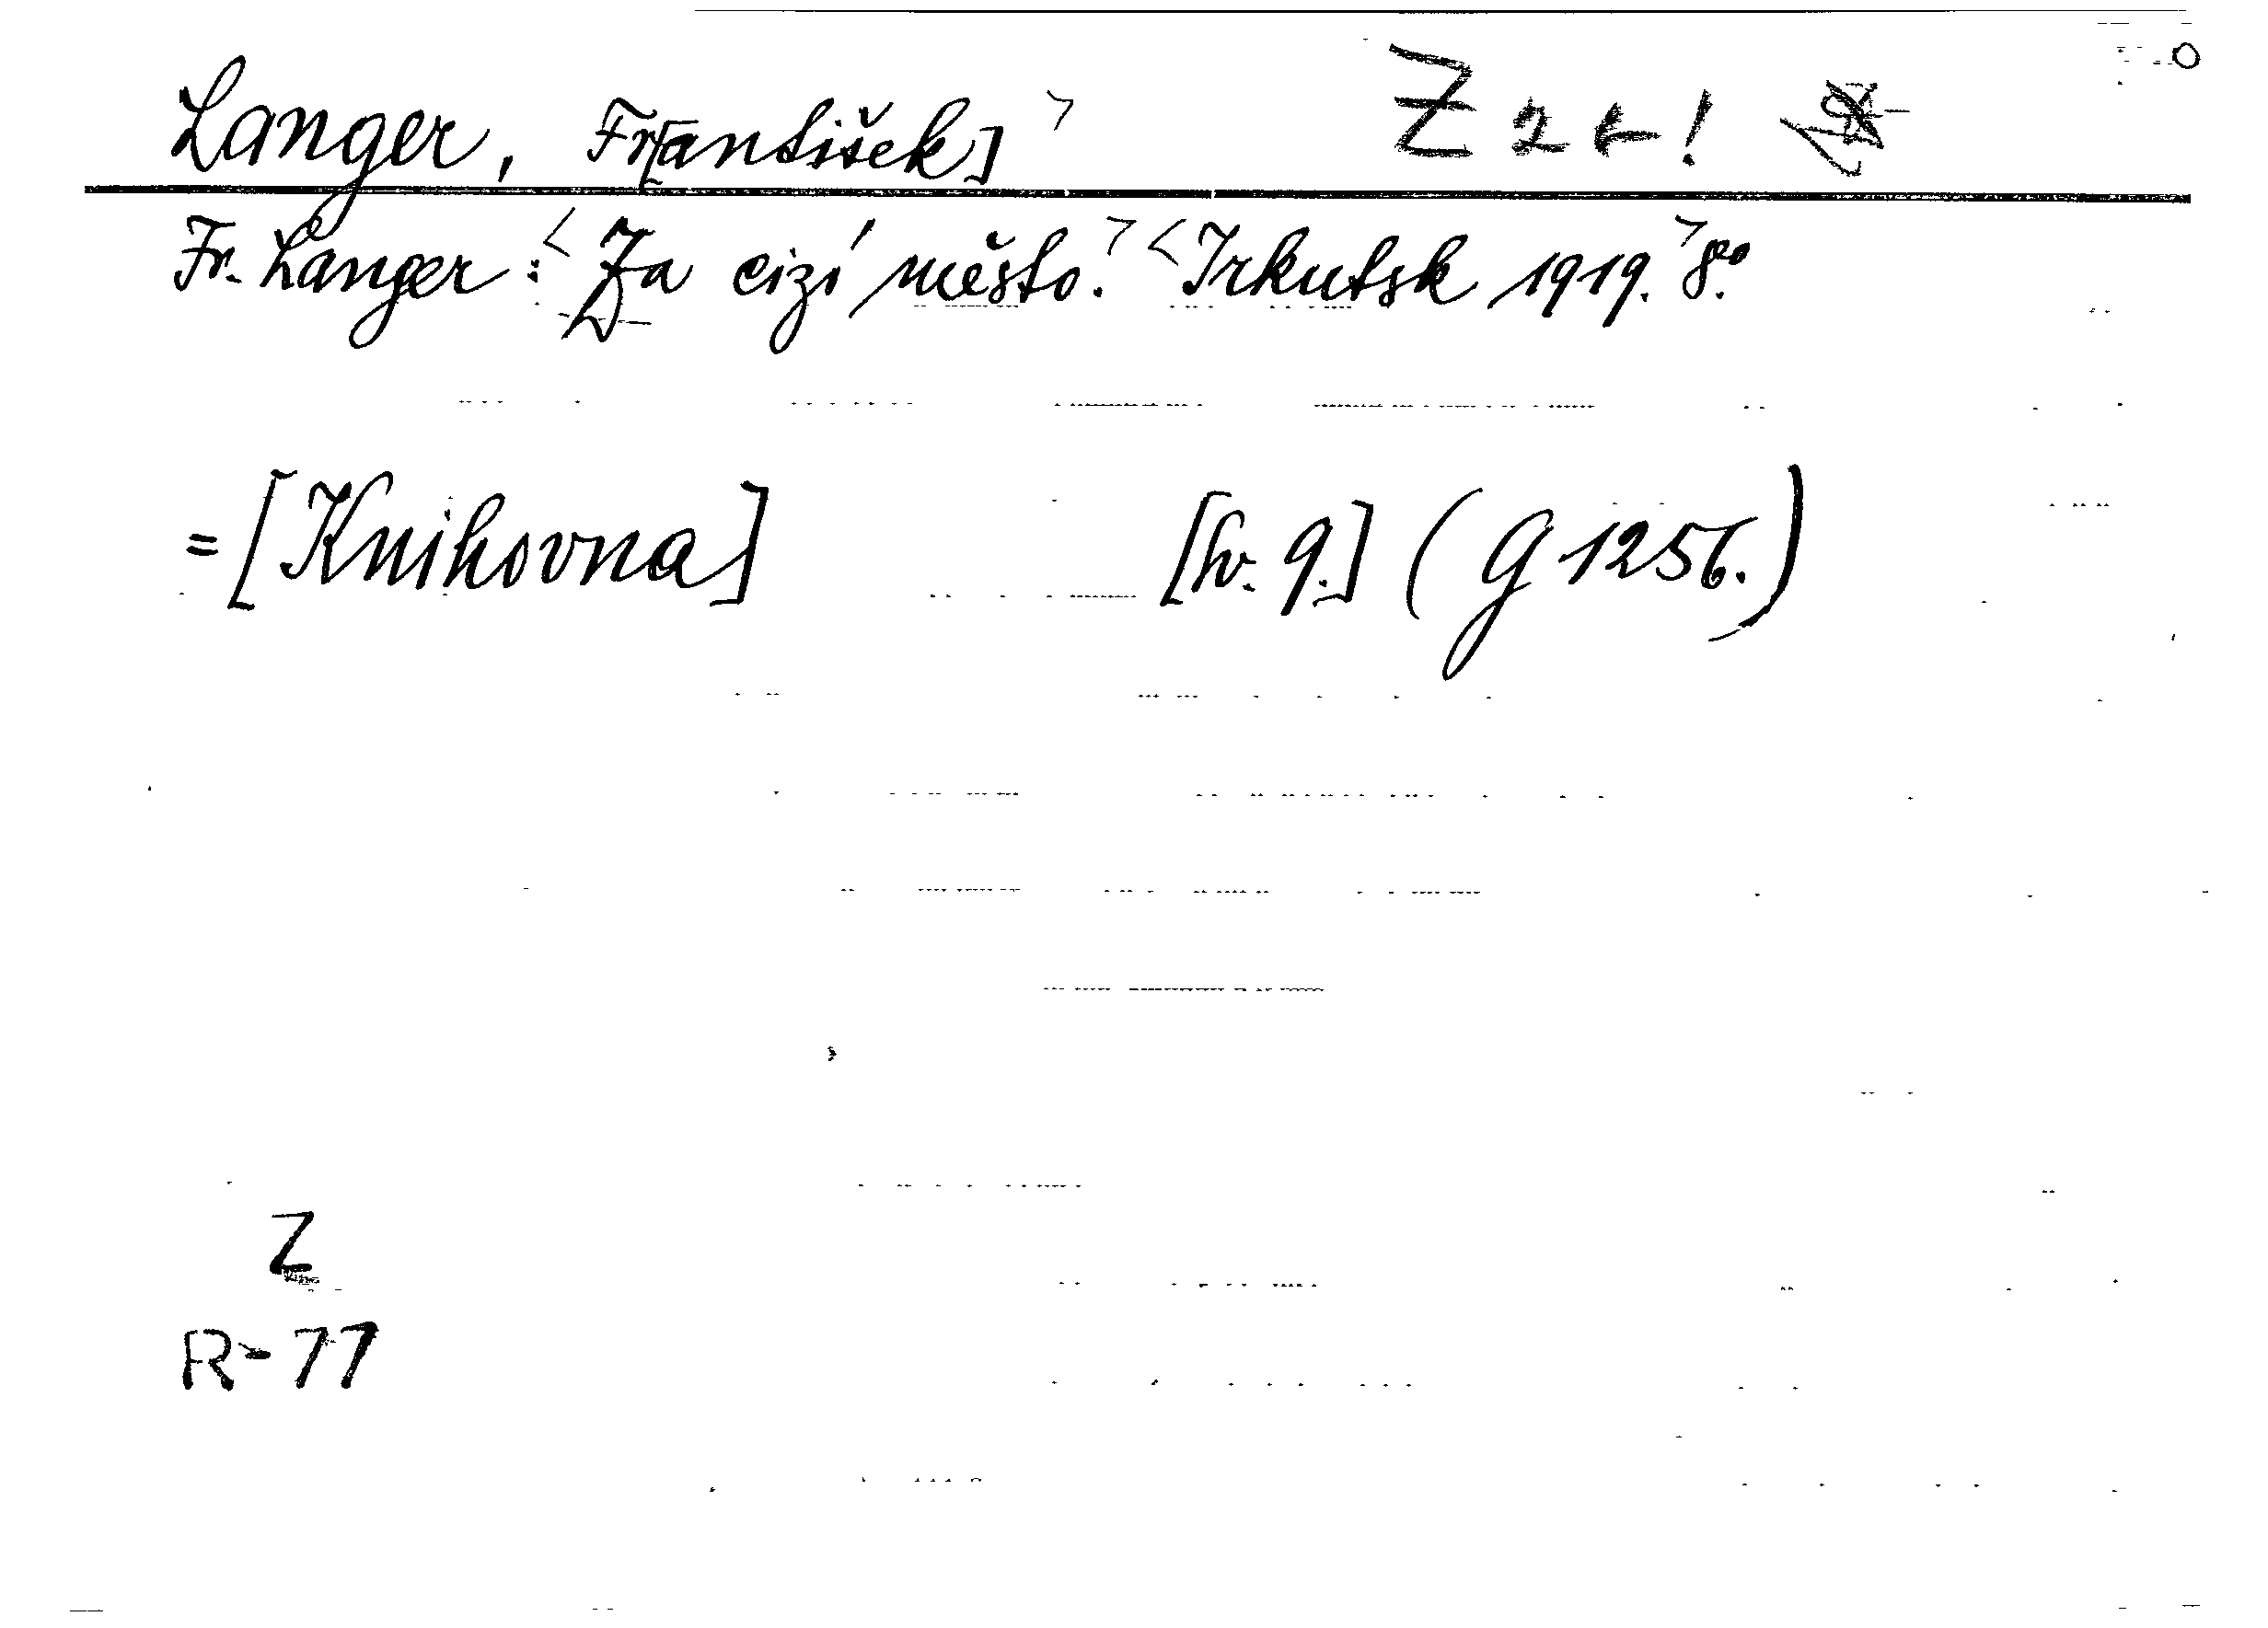 Langer, Fr[antišek]> Z 2
Fr. Langer: <Za cizí město.> <Irkutsk 1919.> 8°.
= [Knihovna] [sv. 9.] (G 1256.)
Z
R-77